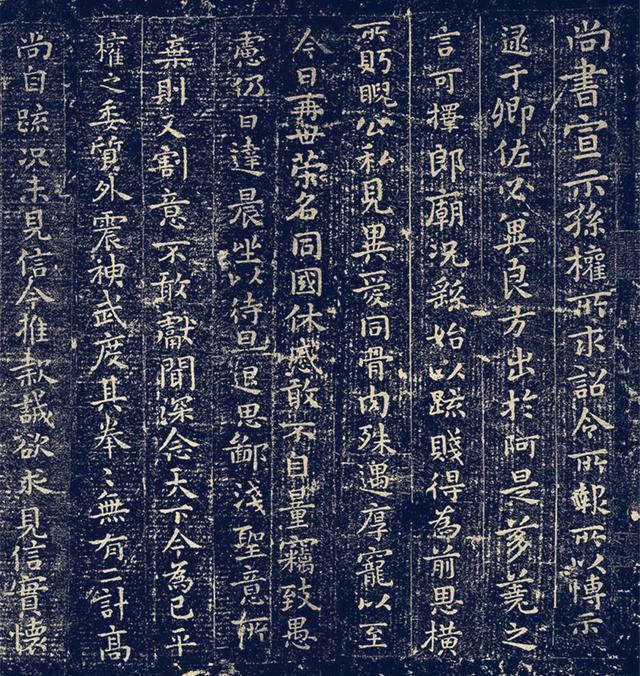 尚書宣示孫權所求詔令所報所以博示
逮于卿佐必冀良方出於阿是芻蕘之
言可擇郎廟況繇始以疏賤得為前思橫
所眄睨公私見異愛同骨肉殊遇厚寵以至
今日再世榮名同國休慼敢不自量竊致愚
慮仍日達晨坐以待旦退思鄙淺聖意所
棄則又割意不敢獻聞深念天下今為已平
權之委質外震神武度其拳〻無有二計高
尚自疏況未見信今推款誠欲求見信實懷